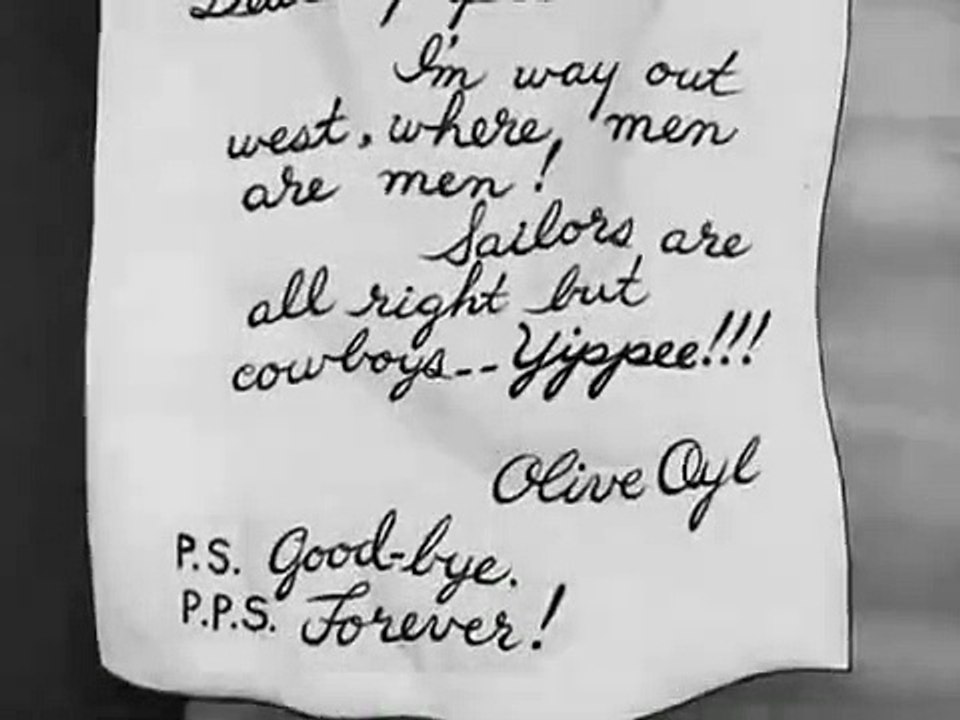 I'm way out
west, where, men
are men!
Sailors are
all right but
cowboys--Yippee!!!
Olive Oyl
P.S. Good-bye.
P.P.S. Forever!